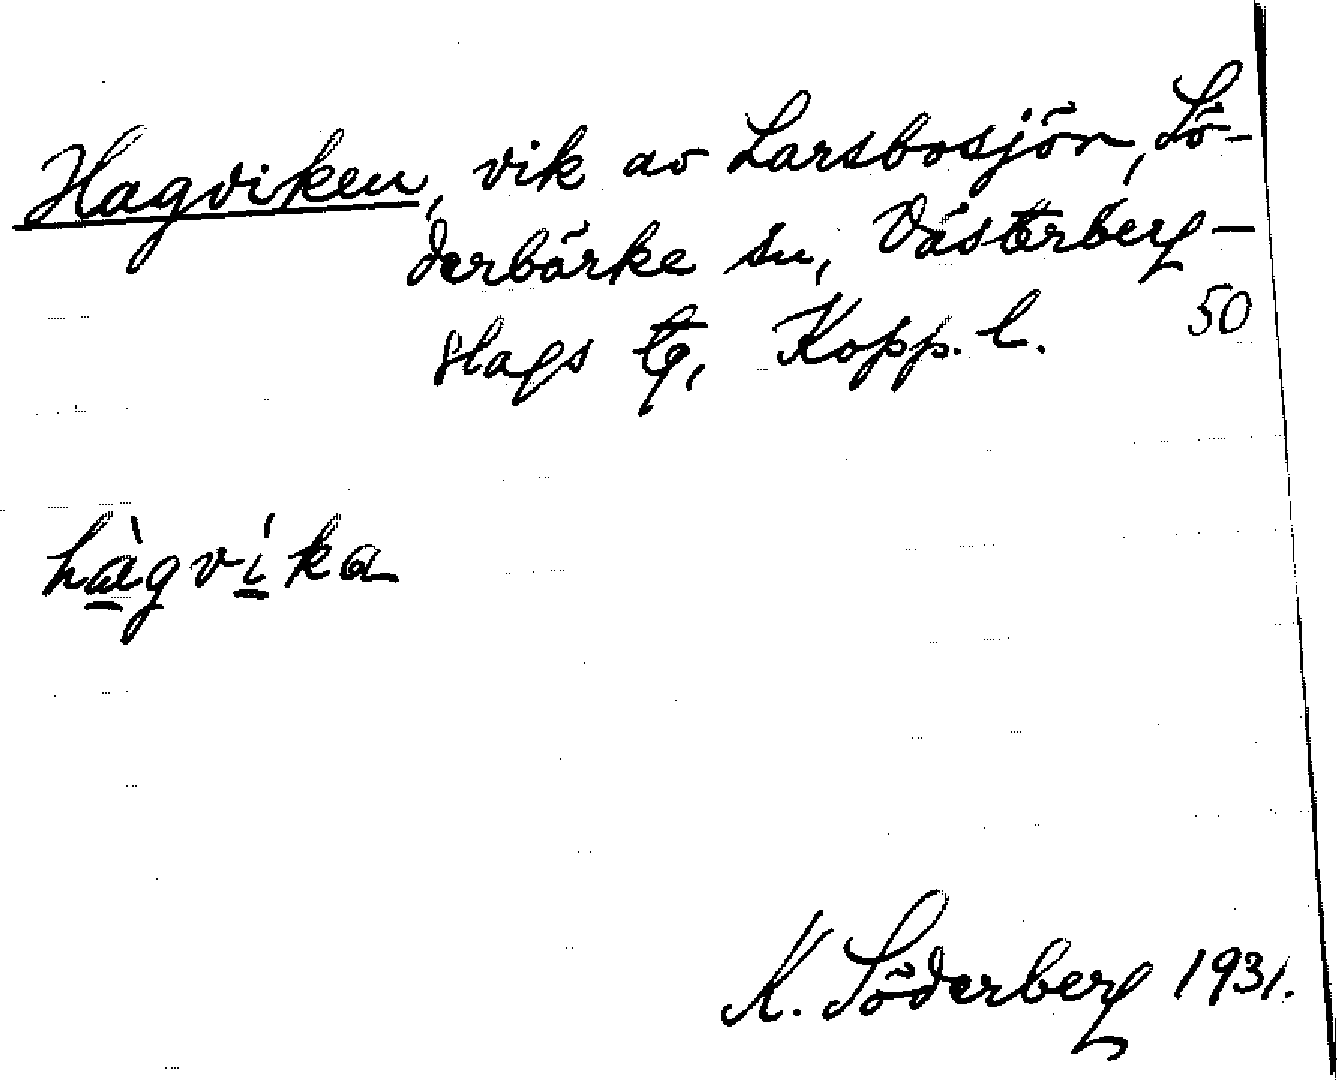 Hagviken, vik av Larsbosjön, Sö-
derbärke sn, Västerberg-
slags tg, Kopp. l. 50
hàgvíka
K. Söderberg 1931.